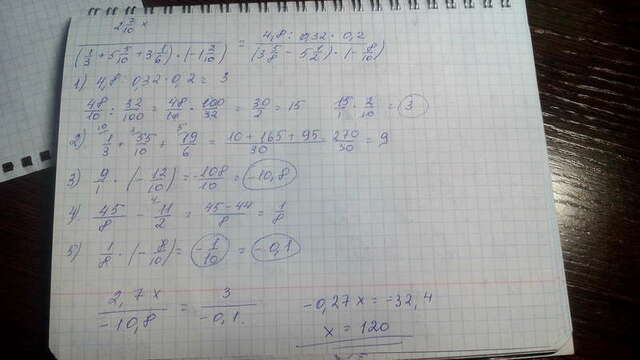 2 7/10 x / ((1/3 + 5 5/10 + 3 1/6) · (-1 2/10)) = 4,8 : 0,32 · 0,2 / ((3 5/8 - 5 1/2) · (- 8/10))
1) 4,8 : 0,32 · 0,2 = 3
48/10 : 32/100 = 48/10 · 100/32 = 30/2 = 15 15/1 · 2/10 = 3
2) 1/3 + 55/10 + 19/6 = 10 + 165 + 95/30 = 270/30 = 9
3) 9/1 · (- 12/10) = -108/10 = -10,8
4) 45/8 - 11/2 = 45-44/8 = 1/8
5) 1/8 · (- 8/10) = - 1/10 = -0,1
2,7 x / -10,8 = 3 / -0,1. -0,27x = -32,4
x = 120